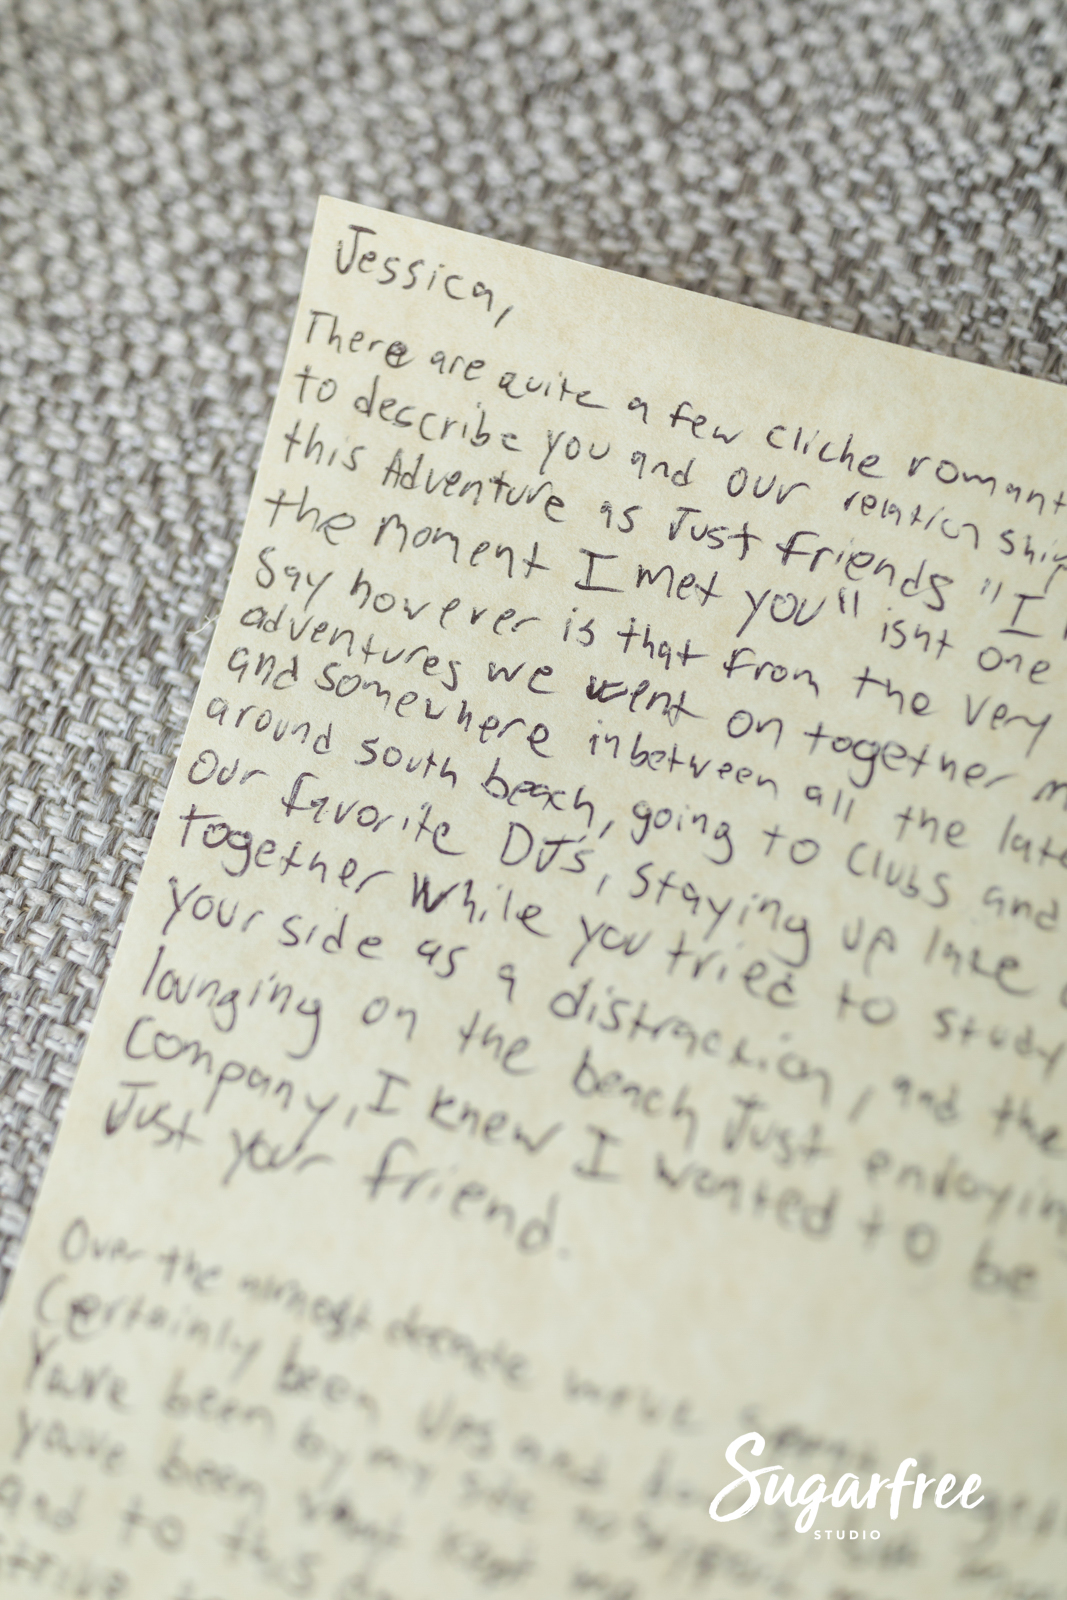 Jessica,
There are quite a few cliche romant
to describe you and our relationship
this Adventure as Just friends "I
the moment I met you" isnt one
Say however is that from the very
adventures we went on together m
and somewhere inbetween all the late
around south beach, going to Clubs and
Our favorite DJ's, staying up late
together While you tried to study
your side as a distraction, and the
lounging on the beach Just enjoying
Company, I knew I wanted to be
Just your friend.
Over the almost decade we've spent
Certainly been Ups and
You've been by my side
you've been kept me
and to this
Sugarfree
STUDIO